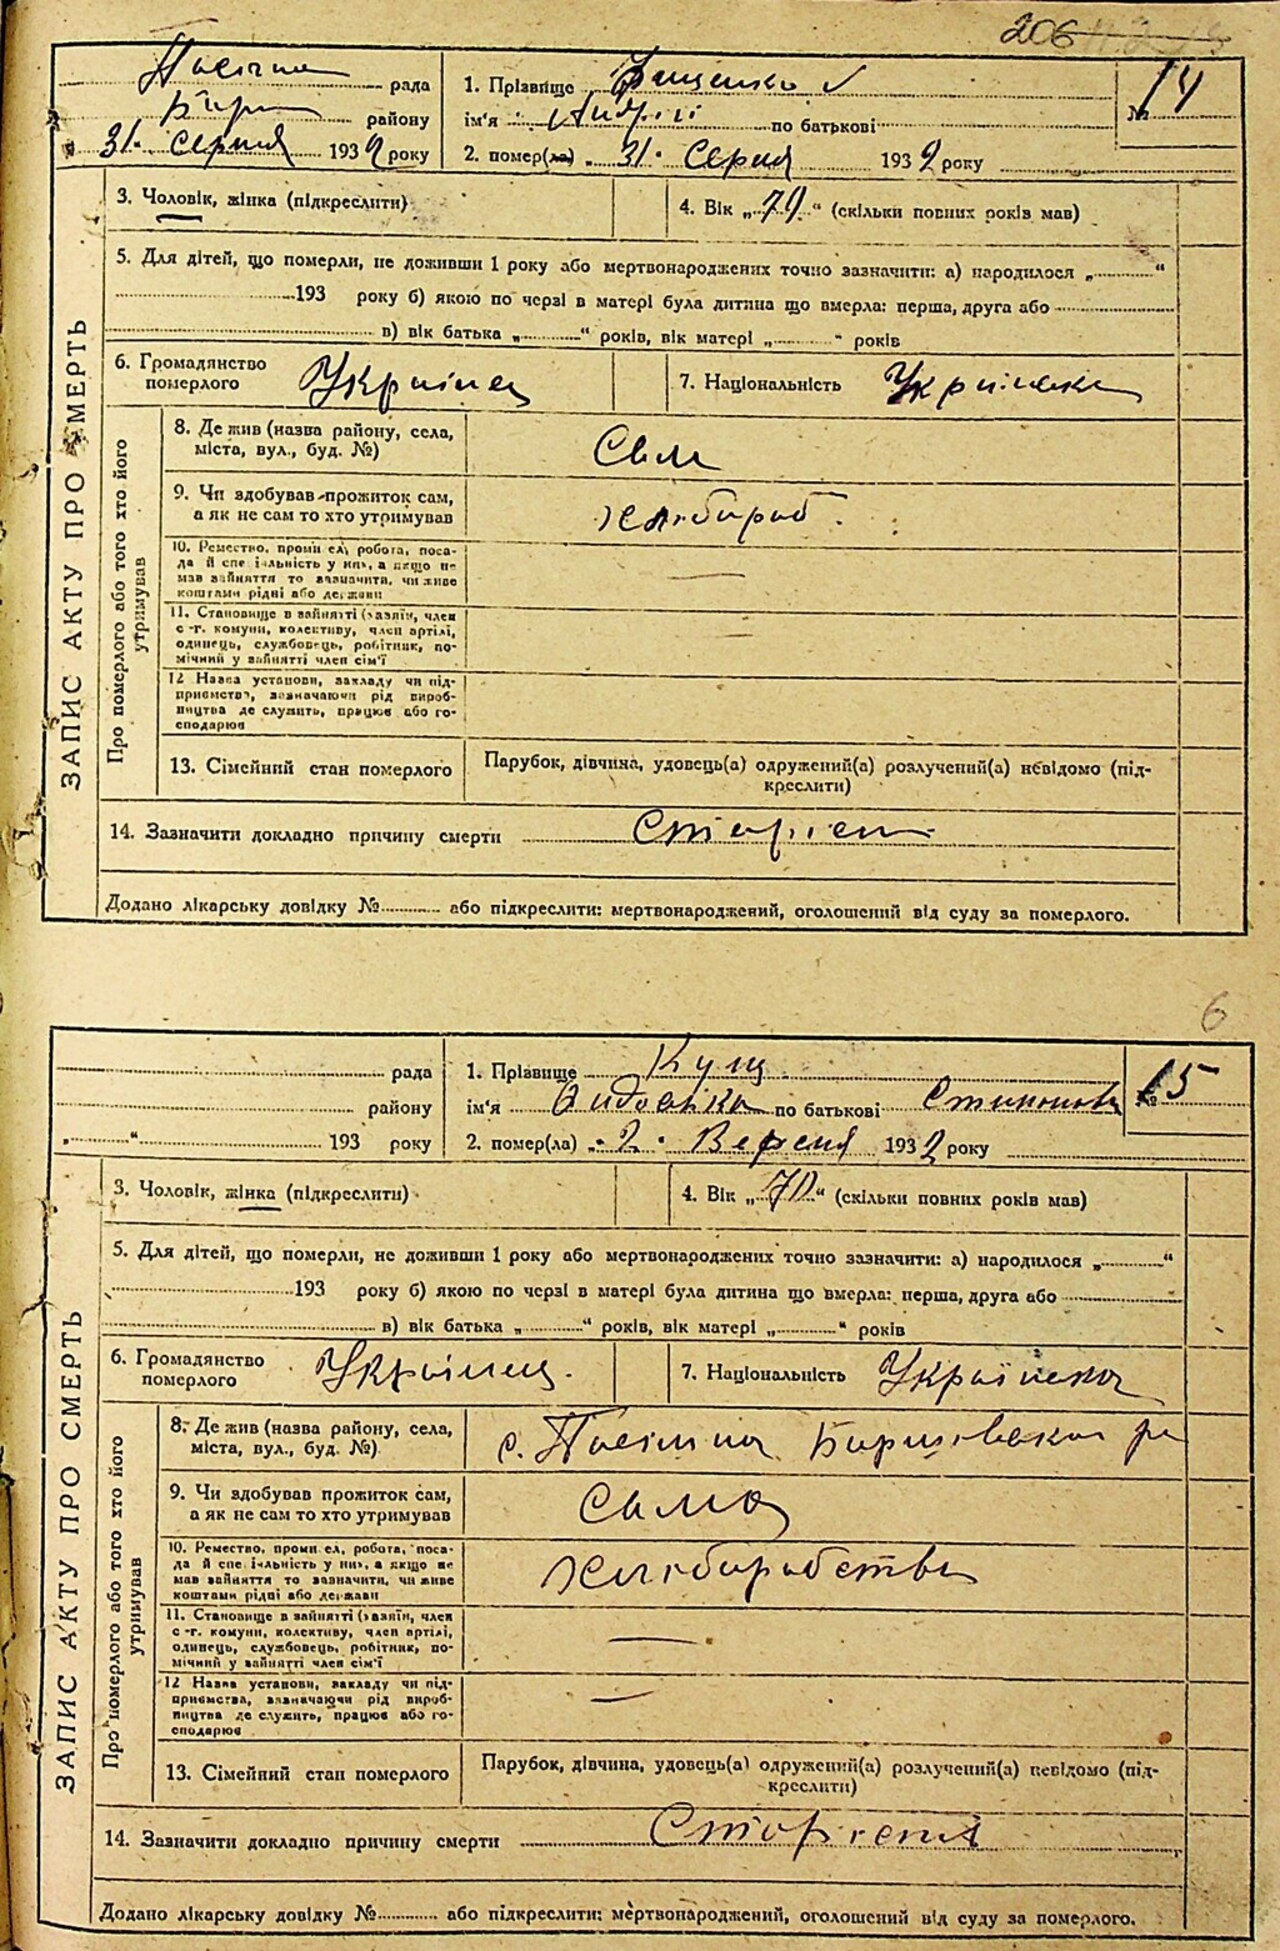 206
рада
району
31. Серпня 1932 року
1. Прізвище Фащенко
ім'я Андрій по батькові
2. помер(ла) „ 31 . Серпня 1932 року
№ 14
ЗАПИС АКТУ ПРО СМЕРТЬ
3. Чоловік, жінка (підкреслити)
4. Вік „79“ (скільки повних років мав)
5. Для дітей, що померли, не доживши 1 року або мертвонароджених точно зазначити: а) народилося „ “
193 року б) якою по черзі в матері була дитина що вмерла: перша, друга або
в) вік батька „ “ років, вік матері „ “ років
6. Громадянство
померлого Українец
7. Національність Українска
Про померлого або того хто його
утримував
8. Де жив (назва району, села,
міста, вул., буд. №)
Сам
9. Чи здобував прожиток сам,
а як не сам то хто утримував
хлібороб.
10. Ремество, промисел, робота, поса-
да й спеціяльність у них, а якщо не
мав зайняття то зазначити, чи живе
коштами рідні або держави
—
11. Становище в зайнятті (хазяїн, член
с.-г. комуни, колективу, член артілі,
одинець, службовець, робітник, по-
мічний у зайнятті член сім'ї
—
12 Назва установи, закладу чи під-
приємства, зазначаючи рід вироб-
ництва де служить, працює або го-
сподарює
13. Сімейний стан померлого
Парубок, дівчина, удовець(а) одружений(а) розлучений(а) невідомо (під-
креслити)
14. Зазначити докладно причину смерти
Додано лікарську довідку № або підкреслити: мертвонароджений, оголошений від суду за померлого.
6
рада
району
„ “ 193 року
1. Прізвище Кущ
ім'я по батькові
2. помер(ла) „ 2 . Вересня 1932 року
№ 15
ЗАПИС АКТУ ПРО СМЕРТЬ
3. Чоловік, жінка (підкреслити)
4. Вік „70“ (скільки повних років мав)
5. Для дітей, що померли, не доживши 1 року або мертвонароджених точно зазначити: а) народилося „ “
193 року б) якою по черзі в матері була дитина що вмерла: перша, друга або
в) вік батька „ “ років, вік матері „ “ років
6. Громадянство
померлого Українец.
7. Національність Українска
Про померлого або того хто його
утримував
8. Де жив (назва району, села,
міста, вул., буд. №)
с.
9. Чи здобував прожиток сам,
а як не сам то хто утримував
Сама
10. Ремество, промисел, робота, поса-
да й спеціяльність у них, а якщо не
мав зайняття то зазначити, чи живе
коштами рідні або держави
хліборобство
11. Становище в зайнятті (хазяїн, член
с.-г. комуни, колективу, член артілі,
одинець, службовець, робітник, по-
мічний у зайнятті член сім'ї
—
12 Назва установи, закладу чи під-
приємства, зазначаючи рід вироб-
ництва де служить, працює або го-
сподарює
—
13. Сімейний стан померлого
Парубок, дівчина, удовець(а) одружений(а) розлучений(а) невідомо (під-
креслити)
14. Зазначити докладно причину смерти
Додано лікарську довідку № або підкреслити: мертвонароджений, оголошений від суду за померлого.